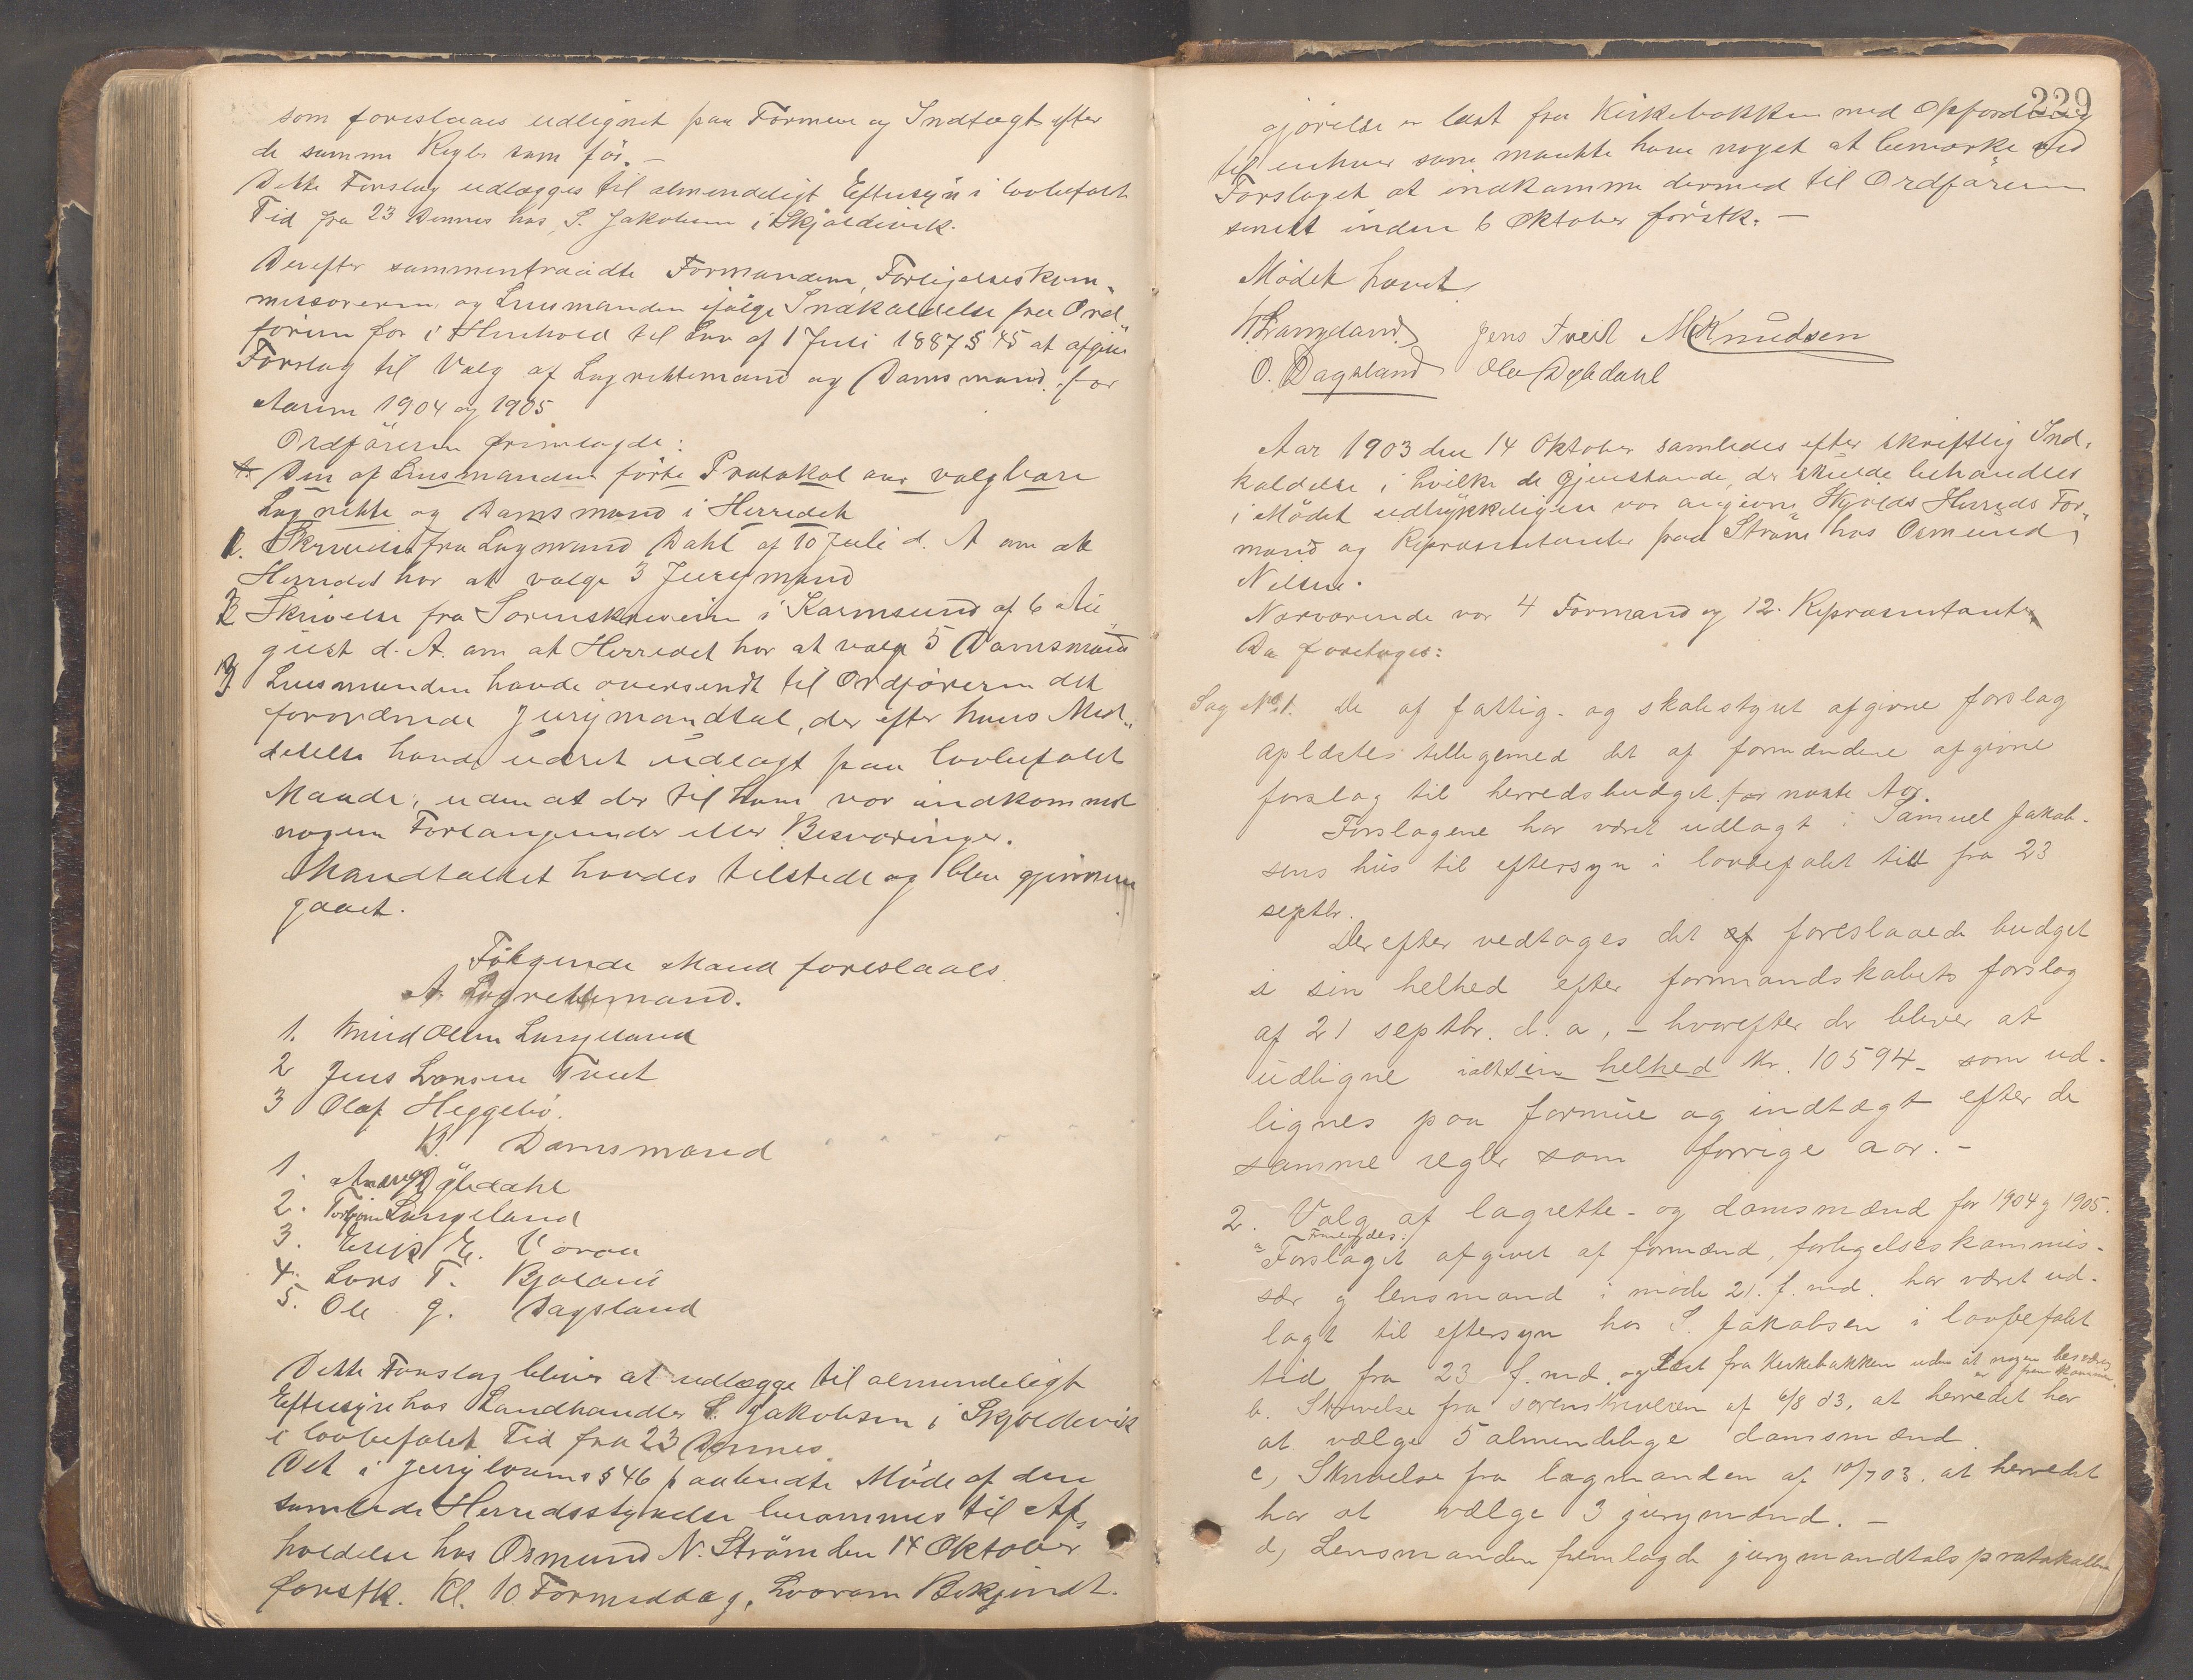 som foreslaaes udlignet paa Formue og Indtægt efter
de samme Regler som før. –
Dette Forslag udlægges til almendeligt Eftersyn i lovbefalt
Tid fra 23 Dennes hos S. Jakobsen i Skjoldevik.
Derefter sammentraadte Formændene, Forligelseskom-
missærerne og Lensmanden ifølge Indkaldelse fra Ord-
føreren for i Henhold til Lov af 1 Juli 1887 § 45 at afgive
Forslag til Valg af Lagrettemænd og Domsmænd for
Aarene 1904 og 1905
Ordføreren fremlagde:
Den af Lensmanden førte Protokol over valgbare
Lagrette og Domsmænd i Herredet
1. Skrivelse fra Lagmand Dahl af 10 Juli d. A om at
Herredet har at vælge 3 Jurymænd
2 Skrivelse fra Sorenskriveren i Karmsund af 6 Au-
gust d. A. om at Herredet har at vælge 5 Domsmænd
3. Lensmanden havde oversendt til Ordføreren det
forordnede Jurymandtal, der efter hans Med-
delelse havde været udlagt paa lovbefalet
Maade, uden at der til ham var indkommet
nogen Forlangender eller Besværinger.
Mandtallet havdes tilstede og blev gjennem
gaaet.
Følgende Mænd foreslaaes
A Lagrettemænd.
1. Knud Olsen Langeland
2 Jens Larsen Tveit
3 Olaf Heggebø.
B. Domsmænd
1. Anders Dybdahl
2. Torbjørn Langeland
3. Erik E. Våraa
4. Lars T. Bjoland
5. Ole G. Dagsland
Dette Forslag bliver at udlægge til almindeligt
Eftersyn hos Landhandler S. Jakobsen i Skjoldevik
i lovbefalet Tid fra 23 Dennes
Det i Jurylovens § 46 paabudte Møde af den
samlede Herredsstyrelse berammes til Af-
holdelse hos Osmund N. Strøm den 14 Oktober
førstk. Kl. 10 Formiddag, hvorom Bekjendt-
229
gjørelse er læst fra Kirkebakken med Opfordring
til enhver som maatte have noget at bemærke ved
Forslaget at indkomme dermed til Ordføreren
senest inden 6 Oktober førstk. –
Mødet hævet.
K. Langeland. Jens Tveit M Knudsen
O. Dagsland Ole Dybdahl
Aar 1903 den 14 Oktober samledes efter skriftlig Ind-
kaldelse i hvilke de Gjenstande, der skulde behandles
i Mødet udtrykkeligen var angivne Herreds For-
mænd og Repræsentanter paa Strøm hos Osmund
Nilsen.
Nærværende var 4 Formænd og 12. Repræsentanter
Da foretoges:
Sag No 1. De af fattig- og skolestyret afgivne forslag
oplæstes tilligemed det af formændene afgivne
forslag til herredsbudget for næste Aar.
Forslagene har været udlagt i Samuel Jakob-
sens hus til eftersyn i lovbefalet tid fra 23
septbr.
Derefter vedtoges det af foreslaaede budget
i sin helhed efter formandskabets forslag
af 21 septbr. d. a, – hvorefter der bliver at
udligne ialt sin helhed Kr. 10594 – som ud-
lignes paa formue og indtægt efter de
samme regler som forrige aar. –
2. Valg af lagrette- og domsmænd for 1904 og 1905.
a Forslaget afgivet af formænd, forligelseskommis-
sær og lensmand i møde 21. f. md. har været ud-
lagt til eftersyn hos S. Jakobsen i lovbefalet
tid fra 23 f. md. og læst fra Kirkebakken uden at nogen besværing
er fremkommen.
b. Skrivelse fra sorenskriveren af 6/8 03, at herredet har
at vælge 5 almindelige domsmænd.
c, Skrivelse fra lagmanden af 10/7 03. at herredet
har at vælge 3 jurymænd. –
d, Lensmanden fremlagde jurymandtalsprotokollen